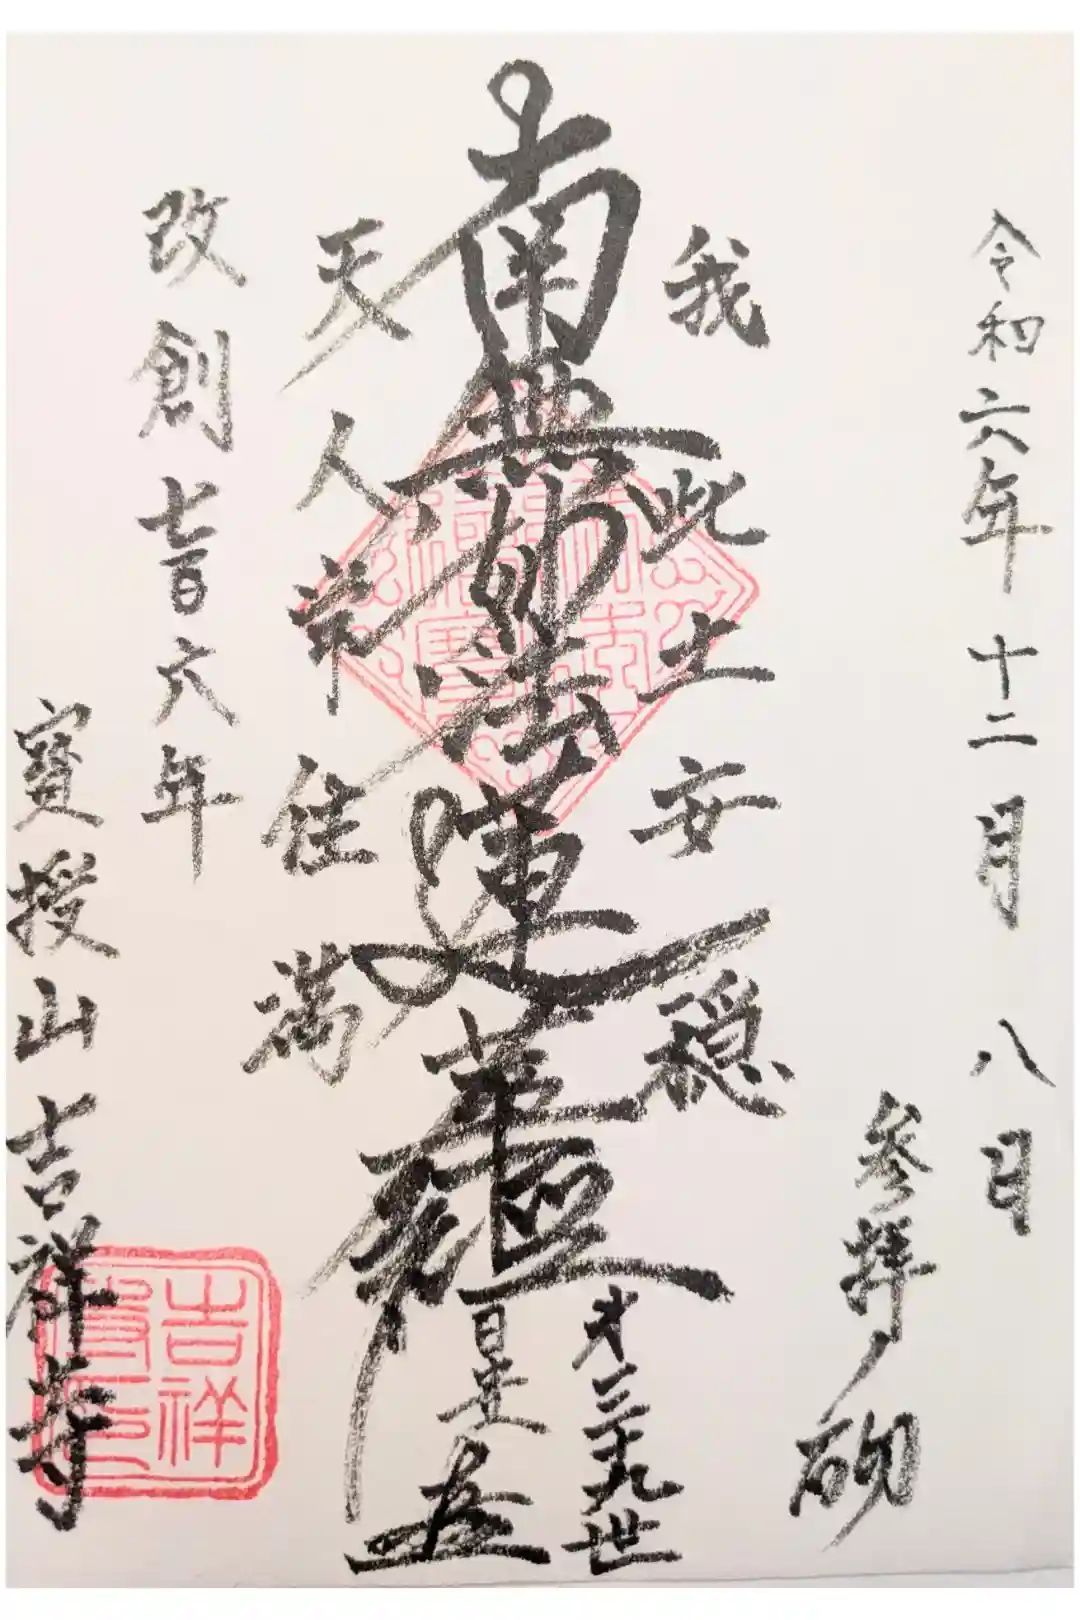 令和六年 十二月 八日
参拝
我此土安穏
南無妙法蓮華経
第三十九世
日
天人常住満
改創七百六年
寶授山吉祥寺
吉祥